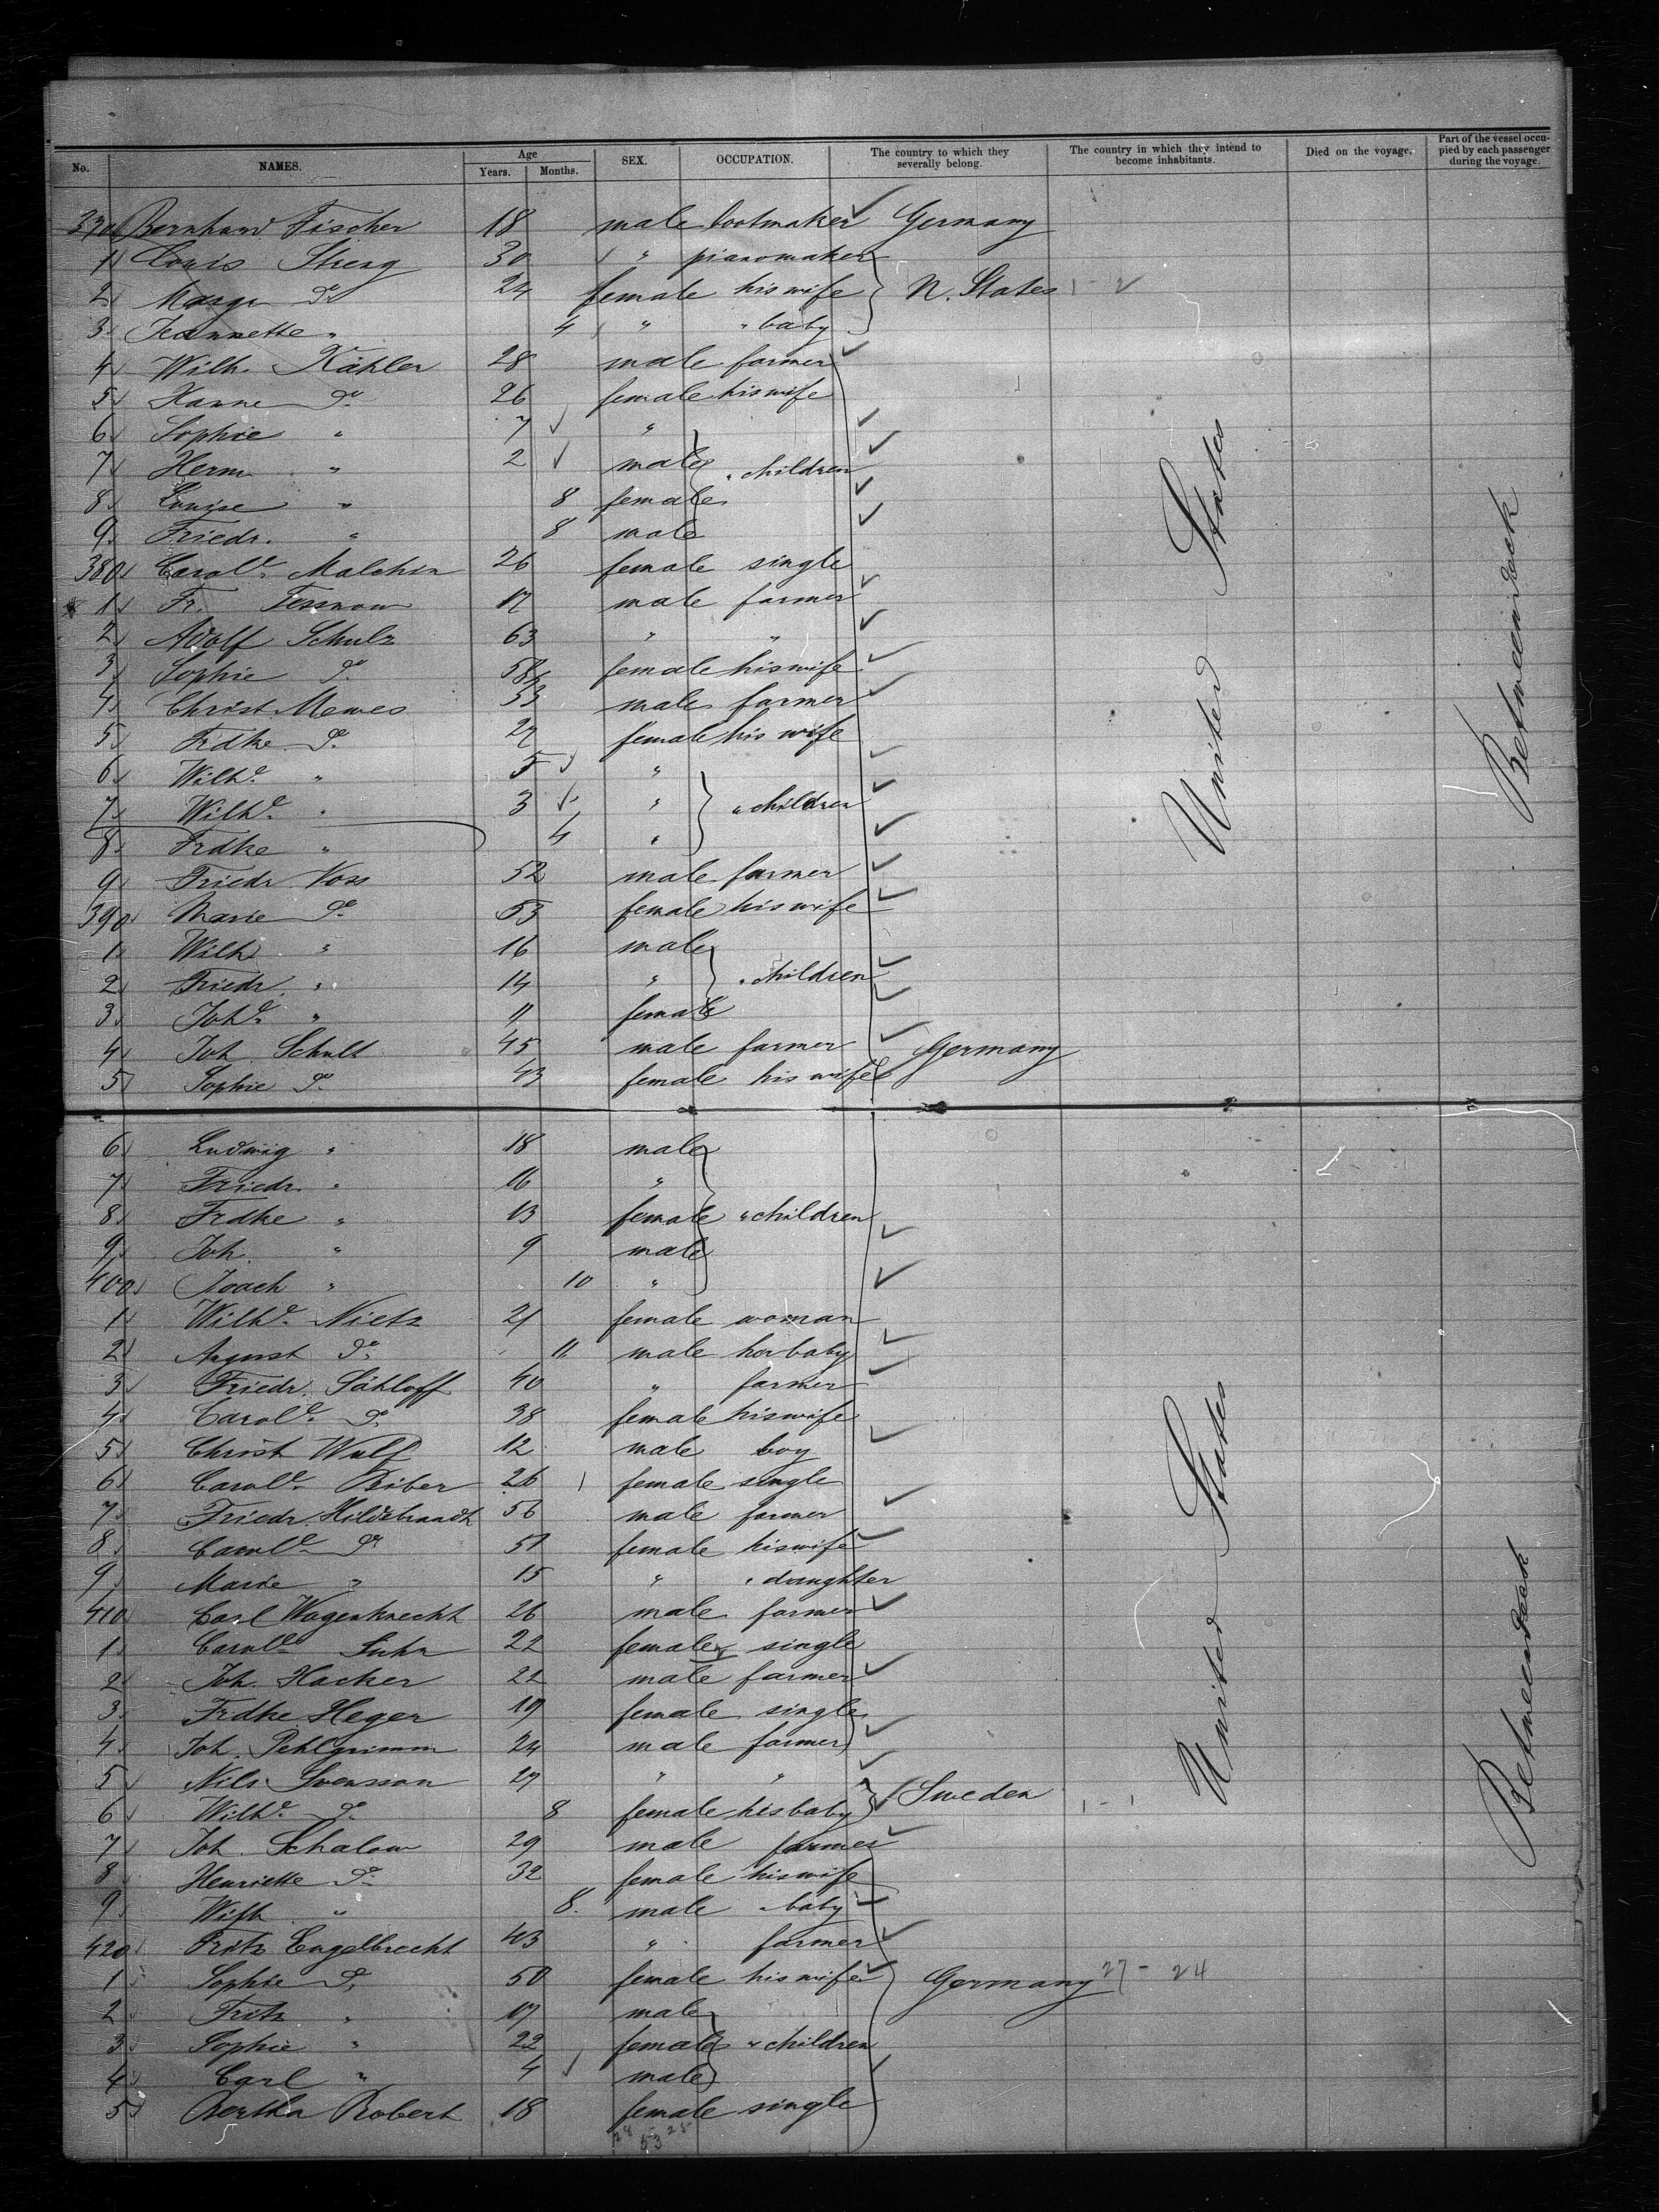 No. NAMES. Age Years. Months. SEX. OCCUPATION. The country to which they severally belong. The country in which they intend to become inhabitants. Died on the voyage. Part of the vessel occupied by each passenger during the voyage.
370 Bernhard Fischer 18 male bootmaker Germany
1 Louis Streng 30 " pianomaker
2 Margr. do 24 female his wife N. States
3 Jeannette " 4 " " baby
4 Wilh. Kähler 28 male farmer
5 Hanne do 26 female his wife
6 Sophie " 7 "
7 Herm " 2 male " children
8 Louise " 8 female
9 Friedr. " 8 male
380 Carole. Malchin 26 female single
1 Fr. Tessnow 17 male farmer
2 Adolf Schulz 63 " "
3 Sophie do female his wife
4 Christ. Mewes 33 male farmer
5 Frdke do 27 female his wife
6 Wilhe. " 5 "
7 Wilhe. " 3 " " children
8 Frdke " 4 "
9 Friedr. Voss 52 male farmer
390 Marie do 53 female his wife
1 Wilh " 16 male
2 Friedr. " 14 " " children
3 Johe. " 11 female
4 Joh. Schult 45 male farmer Germany
5 Sophie do 43 female his wife
United States
Betweendeck
6 Ludwig " 18 male
7 Friedr. " 16 "
8 Frdke " 13 female " children
9 Joh. " 9 male
400 Joach " 10 "
1 Wilhe. Nietz 21 female woman
2 August do 11 male her baby
3 Friedr. Sähloff 40 " farmer
4 Carole. do 38 female his wife
5 Christ Wulf 12 male boy
6 Carole. Biber 26 female single
7 Friedr. Hildebrandt 56 male farmer
8 Carole do 51 female his wife
9 Marie " 15 " " daughter
410 Carl Wagenknecht 26 male farmer
1 Carole Suhr 22 female single
2 Joh. Hacker 22 male farmer
3 Frdke Heger 19 female single
4 Joh. Pehlgrimm 24 male farmer
5 Nils Svensson 27 " "
6 Wilhe. do 8 female his baby Sweden 1 - 1
7 Joh. Schalow 29 male farmer
8 Henriette do 32 female his wife
9 Wilh " 8 male " baby
420 Fritz Engelbrecht 43 " farmer
1 Sophie do 50 female his wife Germany 27 - 24
2 Fritz " 17 male
3 Sophie " 22 female " children
4 Carl " 4 male
5 Bertha Robert 18 female single
28 25
53
United States
Betweendeck